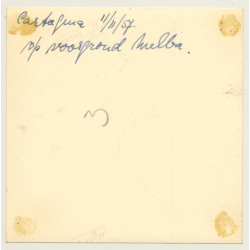 Cartagena 11/11/57.
op voorgrond Melba.
3